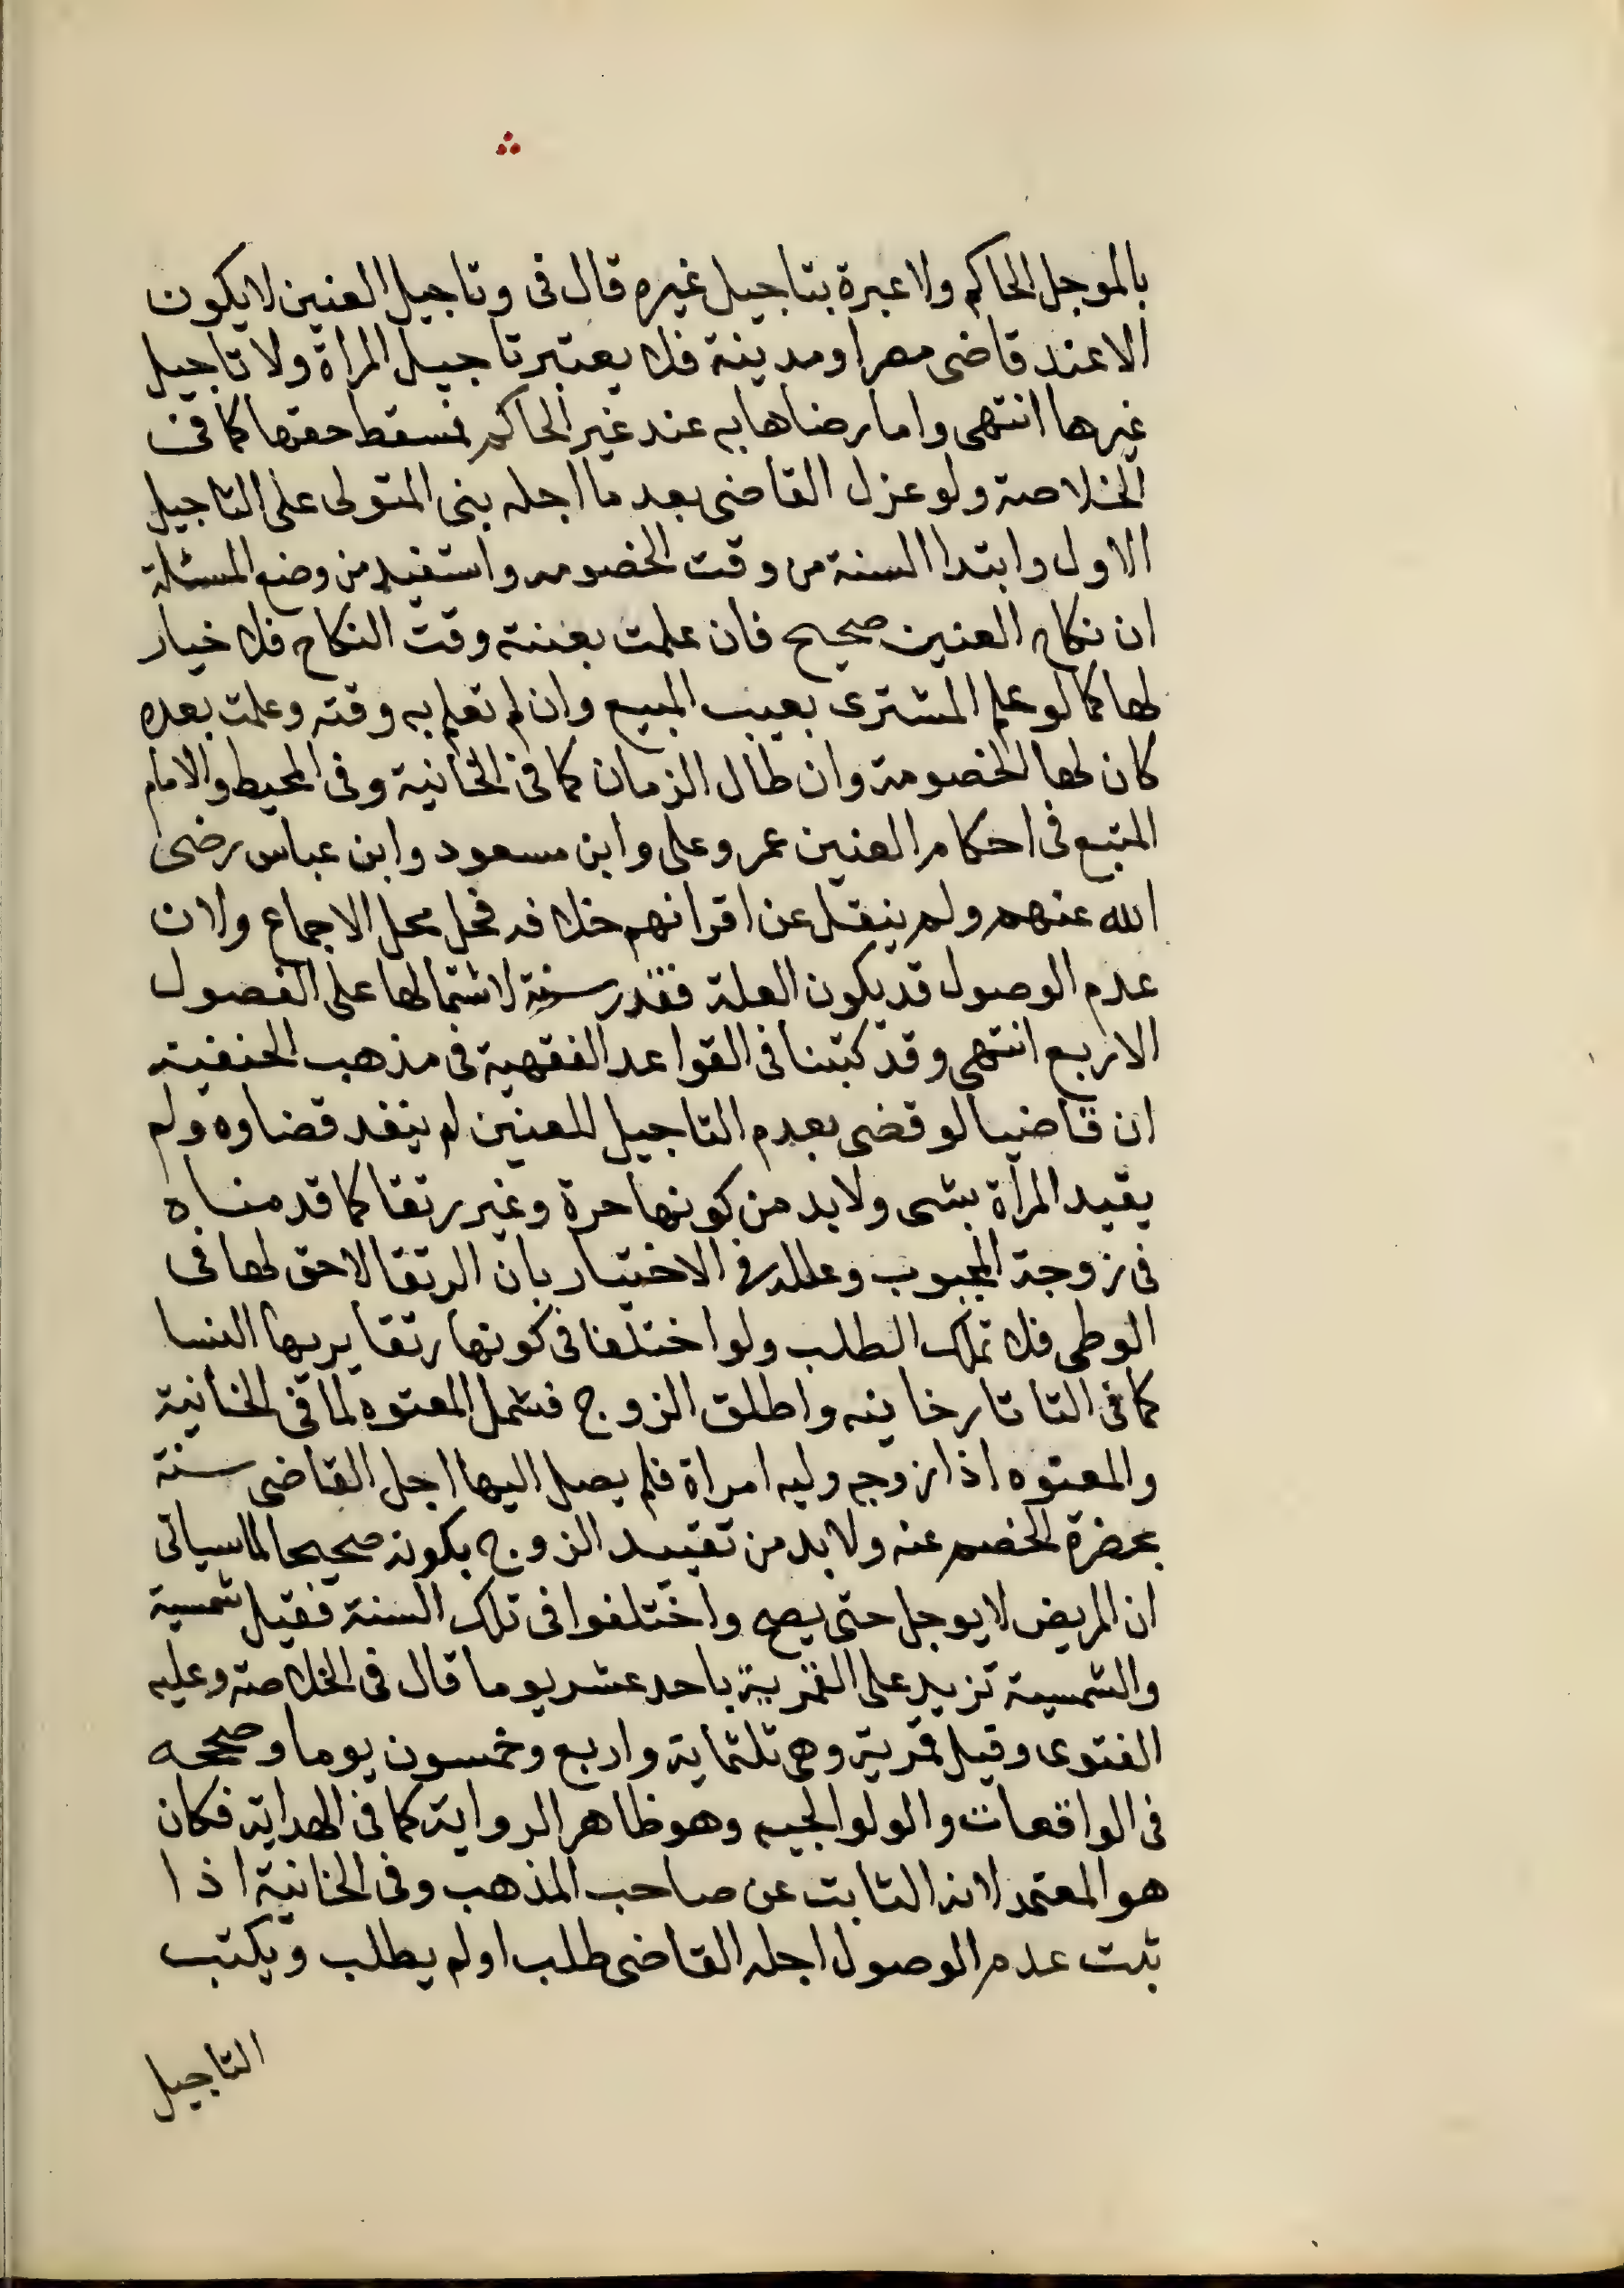 بالموجل الحاكم ولا عبرة بتاجيل غيره قال فى وتاجيل العنين لا يكون
الا عند قاضى مصر او مدينة فلا يعتبر تاجيل المراة ولا تاجيل
غيرها انتهى واما رضاها به عند غير الحاكم فسقط حقها كما فى
الخلاصة ولو عزل القاضى بعد ما اجله بنى المتولى على التاجيل
الاول وابتدا السنة من وقت الخصومه واستفيد من وضع المسئلة
ان نكاح العنين صحيح فان علمت بعننته وقت النكاح فلا خيار
لها كما لو علم المشترى بعيب المبيع وان لم تعلم به وقته وعلمت بعده
كان لها الخصومة وان طال الزمان كما فى الخانية وفى المحيط والامام
المتبع فى احكام العنين عمر وعلى وابن مسعود وابن عباس رضى
الله عنهم ولم ينقل عن اقرانهم خلافه فحل محل الاجماع ولان
عدم الوصول قد يكون العلة فقدر سنة لاشتمالها على الفصول
الاربع انتهى وقد كتبنا فى القواعد الفقهية فى مذهب الحنفية
ان قاضيا لو قضى بعدم التاجيل للعنين لم ينفد قضاوه ولم
يقيد المراة بشى ولا بد من كونها حرة وغير رتقا كما قدمناه
فى زوجة المجبوب وعلله فى الاختيار بان الرتقا لا حق لها فى
الوطى فلا تملك الطلب ولو اختلفا فى كونها رتقا يريها النسا
كما فى التاتارخانيه واطلق الزوج فشمل المعتوه لما فى الخانية
والمعتوه اذا زوجه وليه امراة فلم يصل اليها اجل القاضى سنة
بحضرة الخصم عنه ولا بد من تقييد الزوج بكونه صحيحا لما سياتى
ان المريض لا يوجل حتى يصح واختلفوا فى تلك السنة فقيل شمسية
والشمسية تزيد على القمرية باحد عشر يوما قال فى الخلاصة وعليه
الفتوى وقيل قمرية وهى ثلثماية واربع وخمسون يوما وصححه
فى الواقعات والولوالجيه وهو ظاهر الرواية كما فى الهداية فكان
هو المعتمد لانه الثابت عن صاحب المذهب وفى الخانية اذا
ثبت عدم الوصول اجله القاضى طلب او لم يطلب ويكتب
التاجيل